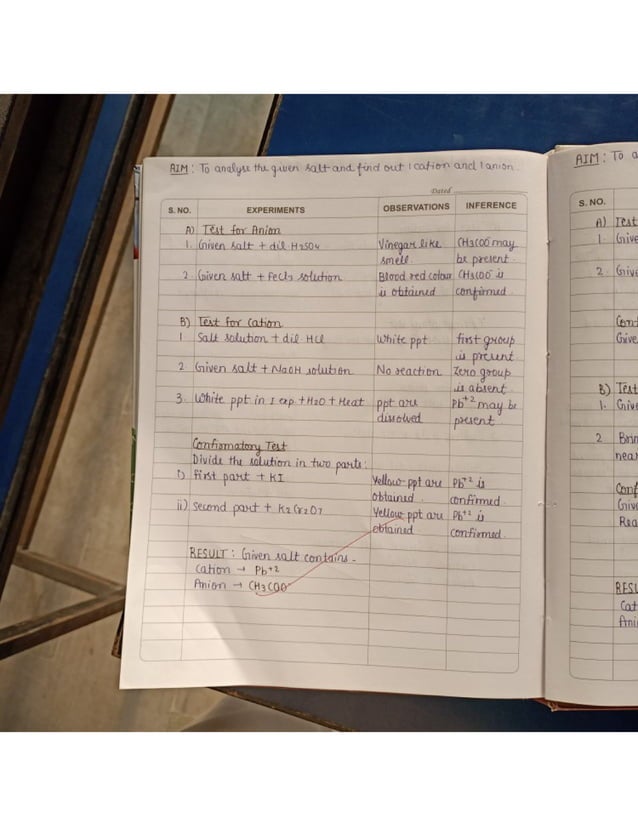 AIM : To analyse the given salt and find out 1 cation and 1 anion.
Dated
S. NO. EXPERIMENTS OBSERVATIONS INFERENCE
A) Test for Anion
1. Given salt + dil H2SO4 Vinegar like CH3COO⁻ may
smell. be present.
2. Given salt + FeCl3 solution Blood red colour CH3COO⁻ is
is obtained confirmed.
B) Test for Cation
1 Salt solution + dil HCl White ppt first group
is present
2 Given salt + NaOH solution No reaction Zero group
is absent.
3. White ppt in I exp. + H2O + Heat ppt are Pb+2 may be
dissolved present
Confirmatory Test
Divide the solution in two parts:
i) first part + KI Yellow ppt are Pb+2 is
obtained. confirmed.
ii) Second part + K2Cr2O7 Yellow ppt are Pb+2 is
obtained confirmed.
RESULT : Given salt contains -
Cation → Pb+2
Anion → CH3COO⁻
AIM : To a
S. NO.
A) Test
1. Give
2. Give
Conf
Give
B) Test
1. Give
2 Brin
near
Conf
Give
Rea
RESU
Cat
Ani